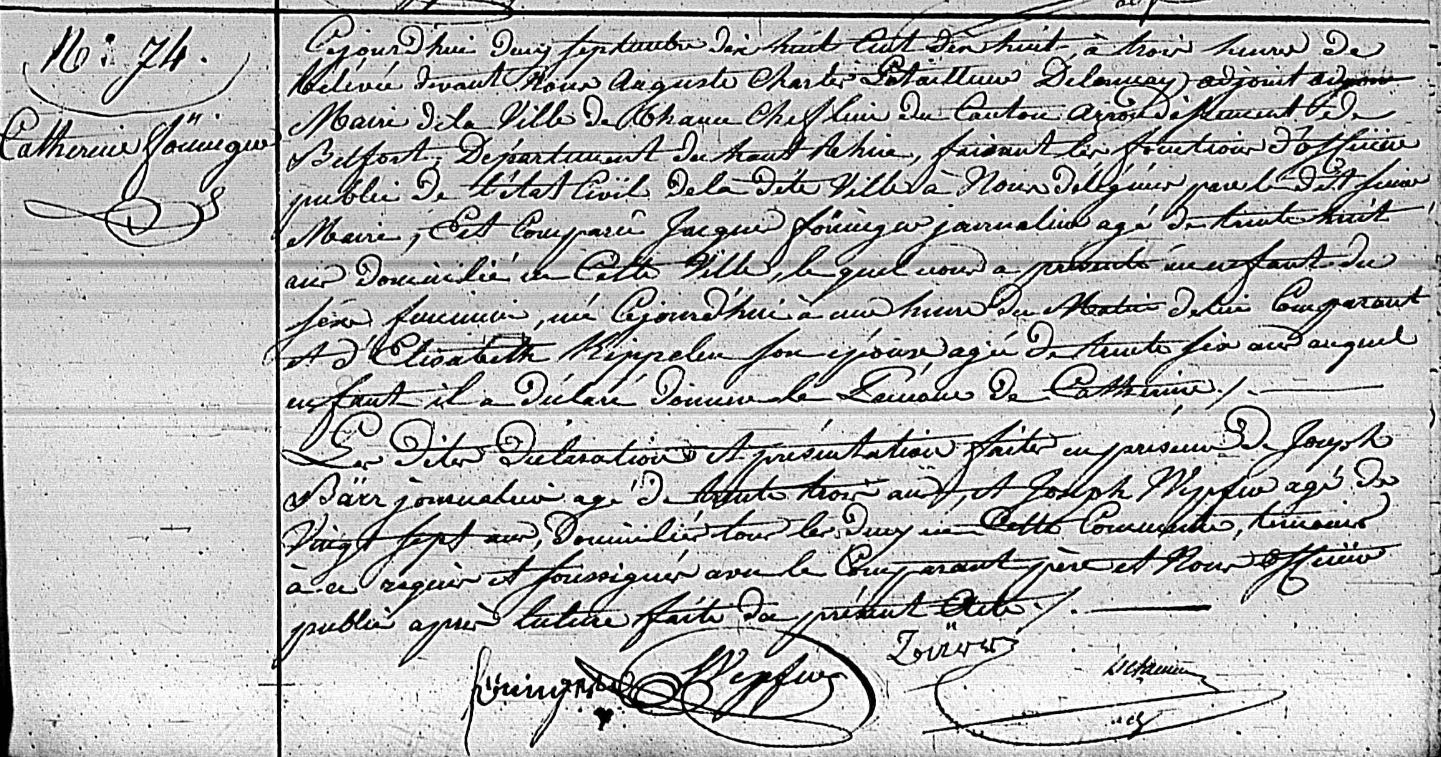 N: 74.
Catherine Föninger
Cejourd'hui deux septembre dix huit Cent dix huit, à trois heures de
Relévée devant Nous Auguste Charles Delaunay, adjoint au
Maire de la Ville de Thann Cheflieu du Canton Arrondissement de
Belfort, Département du haut Rhin, faisant les fonctions d'officier
public de l'état Civil de la dite Ville à Nous délégués par le dit sieur
Maire, Est Comparû Jacque Föninger journalier agé de trente huit
ans Domicilié en Cette Ville, le quel nous a présenté un enfant du
séxe feminin, né Cejourd'hui à une heure du Matin de lui Comparant
et d'Elisabeth Kippelen son épouse agée de trente six ans auquel
enfant il a déclaré donner le Prénom de Catherine ./.
Les dites Déclaration et présentation faites en présence de Joseph
Bärr journalier agé de trente trois ans, et Joseph Wipfer agé de
Vingt sept ans, Domiciliés tous les deux en Cette Commune, temoins
à ce requis et soussignés avec le Comparant père et Nous officier
public après lecture faite du présent Acte ./.
Föninger Wipfer